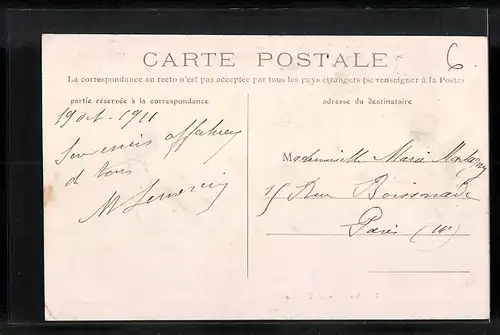 CARTE POSTALE
6
La correspondance au recto n'est pas acceptée par tous les pays étrangers (se renseigner à la Poste)
partie réservée à la correspondance
adresse du Destinataire
19 oct - 1911
Souvenirs affectueux
de tous
Mademoiselle Marie Montagny
15 Rue Boissonade
Paris (14e)